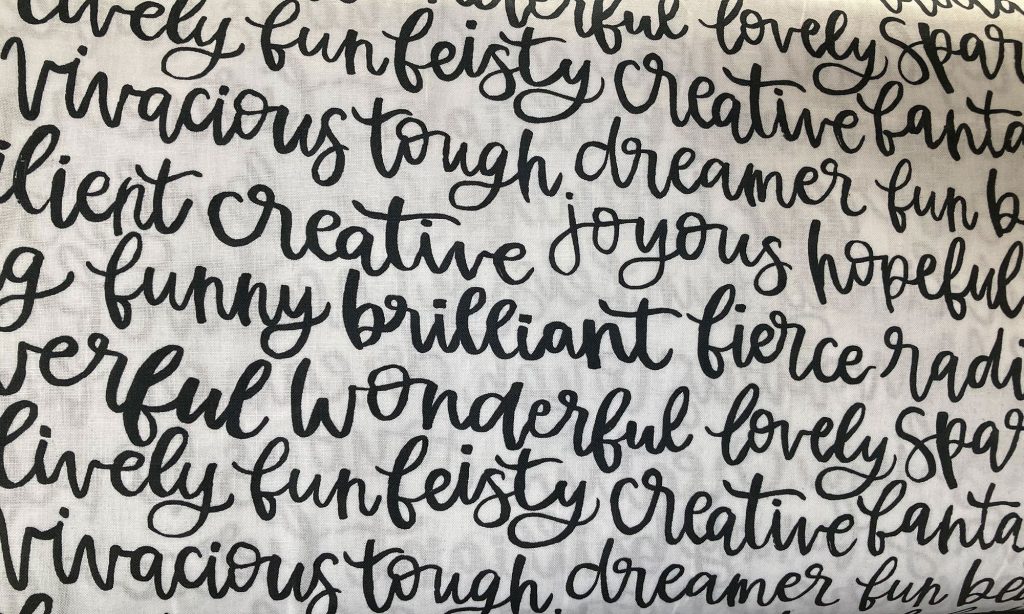 lively fun feisty wonderful lovely spar
vivacious tough creative fanta
ilient creative dreamer fun b
g funny joyous hopeful
verful brilliant fierce radi
lively wonderful lovely spar
vivacious fun feisty creative fanta
tough dreamer fun be